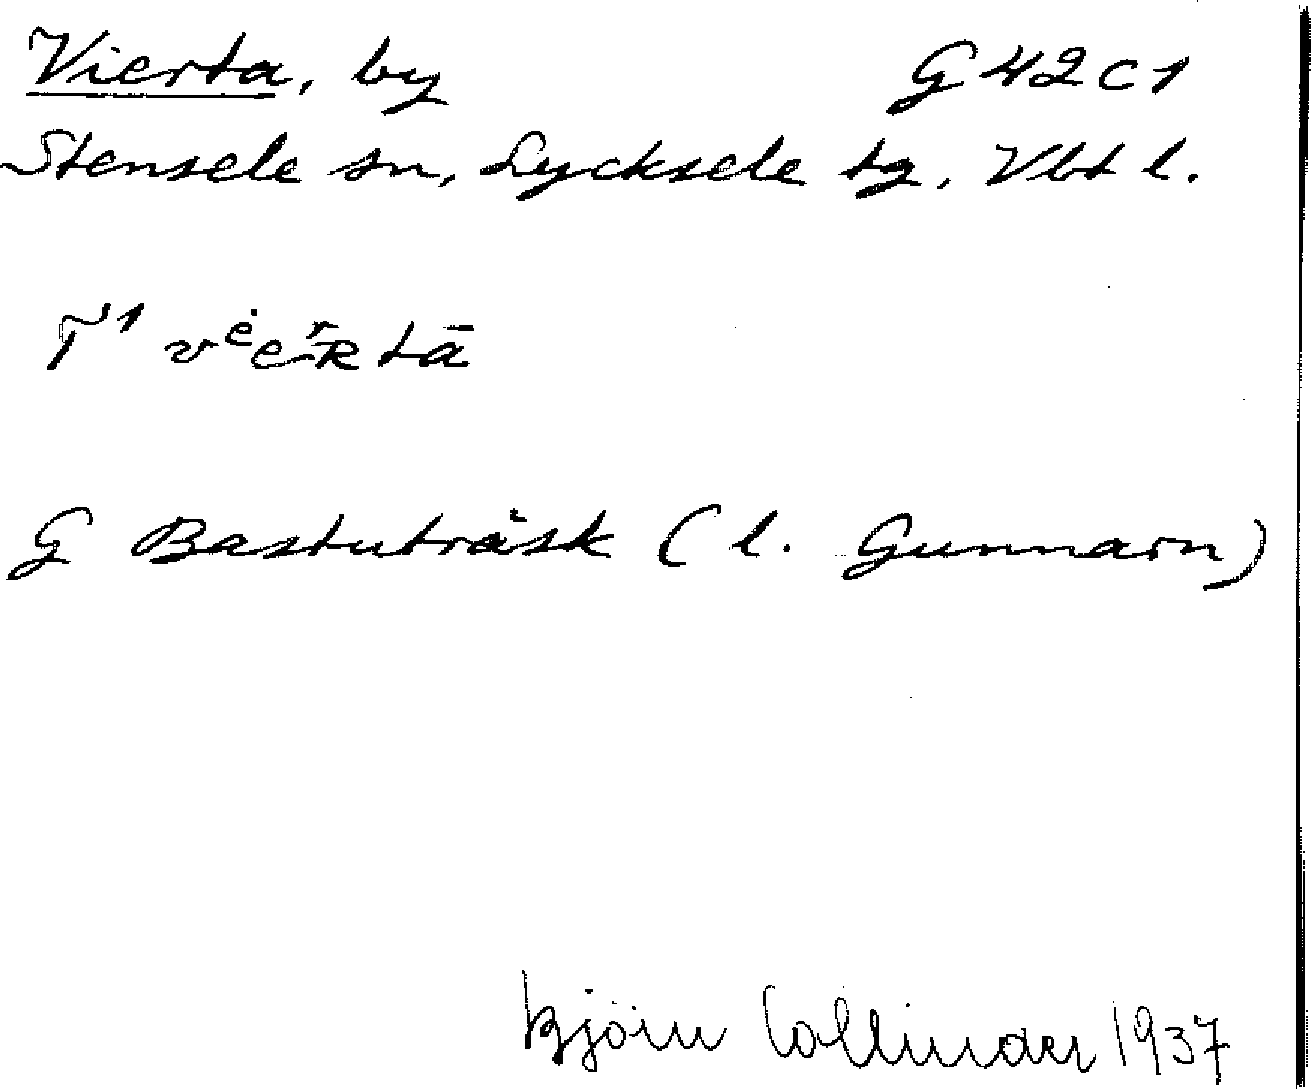 Vierta, by G 42 c 1
Stensele sn, Lycksele tg, Vbt l.
G Bastuträsk (l. Gunnarn)
Björn Collinder 1937